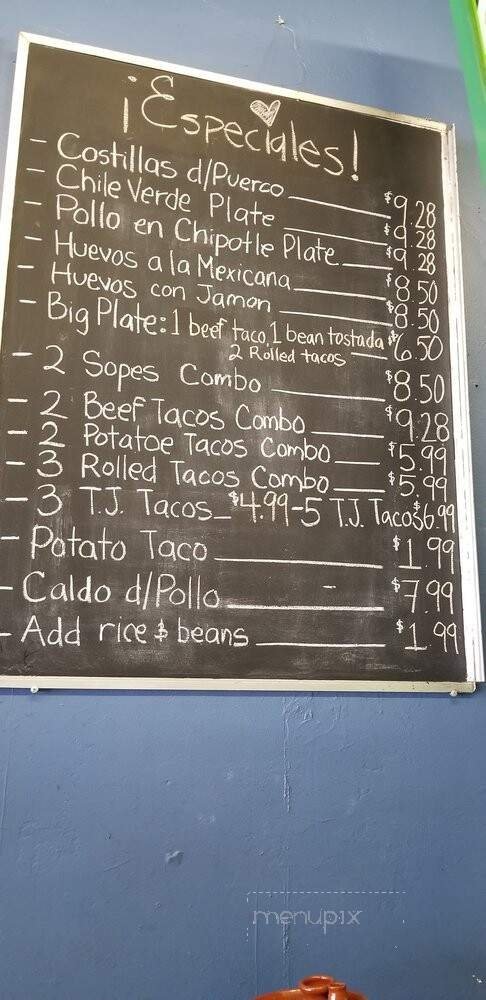 ¡Especiales!
- Costillas d/Puerco $9.28
- Chile Verde Plate $9.28
- Pollo en Chipotle Plate $9.28
- Huevos a la Mexicana $8.50
- Huevos con Jamon $8.50
- Big Plate: 1 beef taco, 1 bean tostada $6.50
2 Rolled tacos
- 2 Sopes Combo $8.50
- 2 Beef Tacos Combo $9.28
- 2 Potatoe Tacos Combo $5.99
- 3 Rolled Tacos Combo $5.99
- 3 T.J. Tacos $4.99-5 T.J. Tacos $6.99
- Potato Taco $1.99
- Caldo d/Pollo $7.99
- Add rice & beans $1.99
menupix